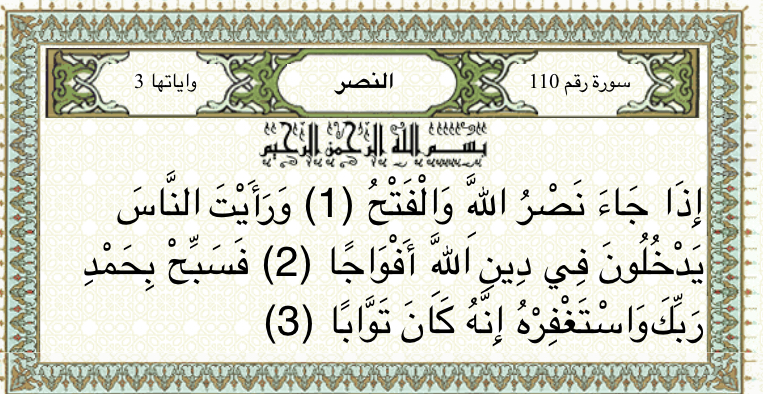 سورة رقم 110 النصر واياتها 3
بسم الله الرحمن الرحيم
إِذَا جَاءَ نَصْرُ اللَّهِ وَالْفَتْحُ (1) وَرَأَيْتَ النَّاسَ
يَدْخُلُونَ فِي دِينِ اللَّهِ أَفْوَاجًا (2) فَسَبِّحْ بِحَمْدِ
رَبِّكَ وَاسْتَغْفِرْهُ إِنَّهُ كَانَ تَوَّابًا (3)